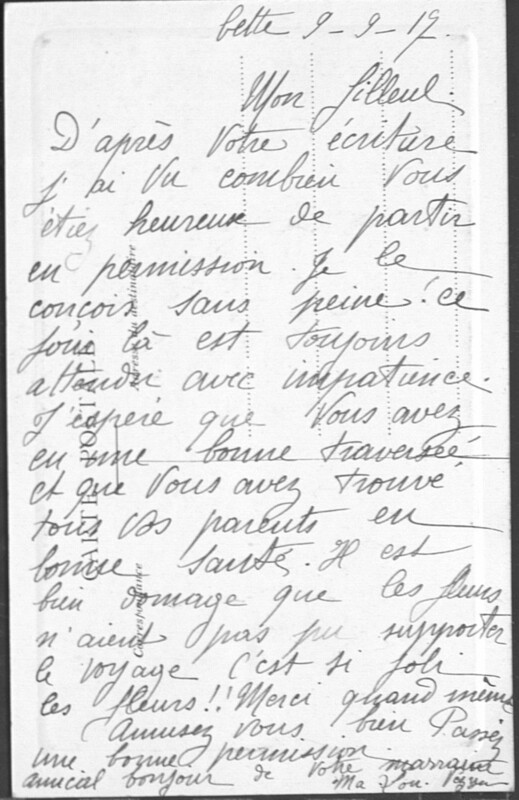 Cette 9-9-17.
Mon filleul.
D'après Votre écriture
j'ai Vu combien Vous
êtiez heureux de partir
en permission. Je le
conçois sans peine! ce
jour là est toujours
attendu avec impatience.
J'espère que Vous avez
eu une bonne traversée
et que Vous avez trouvé
tous Vos parents en
bonne santé. Il est
bien domage que les fleurs
n'aient pas pu supporter
le voyage c'est si joli
les fleurs!! Merci quand même
Amusez Vous bien Passez
une bonne permission
amical bonjour de Votre marraine
CARTE POSTALE
Correspondance
Adresse du destinataire